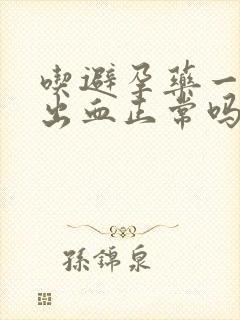 喫避孕藥一
出血正常嗎
孫錦泉